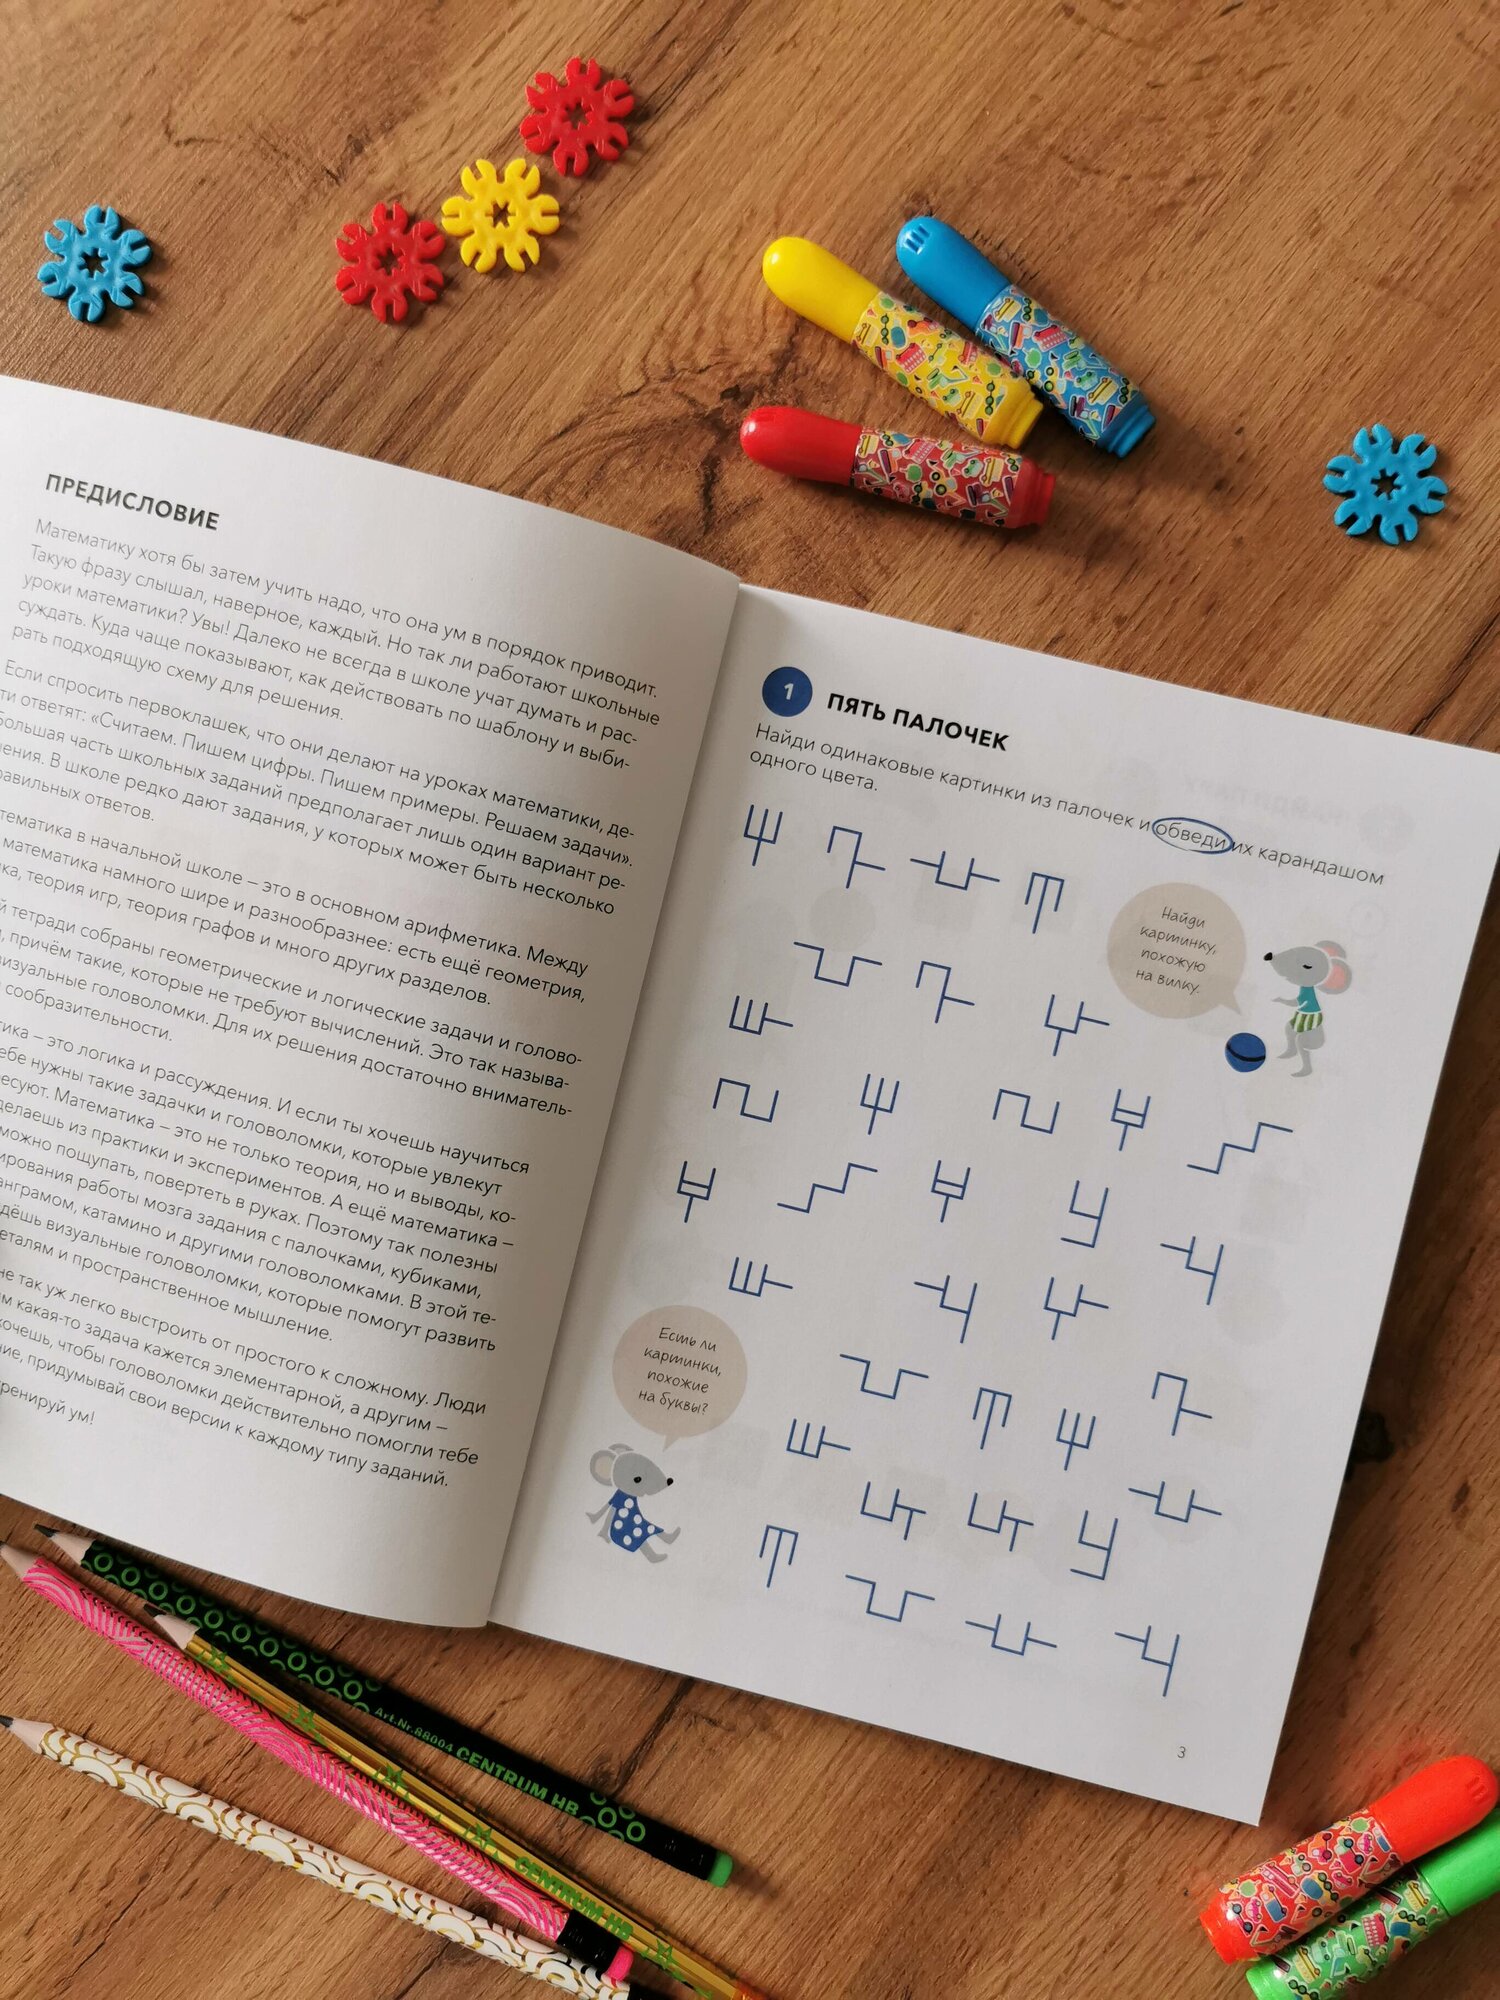 ПРЕДИСЛОВИЕ
Математику хотя бы затем учить надо, что она ум в порядок приводит.
Такую фразу слышал, наверное, каждый. Но так ли работают школьные
уроки математики? Увы! Далеко не всегда в школе учат думать и рас-
суждать. Куда чаще показывают, как действовать по шаблону и выби-
рать подходящую схему для решения.
Если спросить первоклашек, что они делают на уроках математики, де-
ти ответят: «Считаем. Пишем цифры. Пишем примеры. Решаем задачи».
большая часть школьных заданий предполагает лишь один вариант ре-
шения. В школе редко дают задания, у которых может быть несколько
равильных ответов.
тематика в начальной школе – это в основном арифметика. Между
математика намного шире и разнообразнее: есть ещё геометрия,
ка, теория игр, теория графов и много других разделов.
й тетради собраны геометрические и логические задачи и голово-
, причём такие, которые не требуют вычислений. Это так называ-
визуальные головоломки. Для их решения достаточно вниматель-
сообразительности.
тика – это логика и рассуждения. И если ты хочешь научиться
ебе нужны такие задачки и головоломки, которые увлекут
ресуют. Математика – это не только теория, но и выводы, ко-
делаешь из практики и экспериментов. А ещё математика –
можно пощупать, повертеть в руках. Поэтому так полезны
ирования работы мозга задания с палочками, кубиками,
анграмом, катамино и другими головоломками. В этой те-
дёшь визуальные головоломки, которые помогут развить
еталям и пространственное мышление.
не так уж легко выстроить от простого к сложному. Люди
м какая-то задача кажется элементарной, а другим –
хочешь, чтобы головоломки действительно помогли тебе
ние, придумывай свои версии к каждому типу заданий.
ренируй ум!
1 ПЯТЬ ПАЛОЧЕК
Найди одинаковые картинки из палочек и обведи их карандашом
одного цвета.
Найди
картинку,
похожую
на вилку.
Есть ли
картинки,
похожие
на буквы?
3
Art.Nr.88004 CENTRUM HB
CENTRUM HB